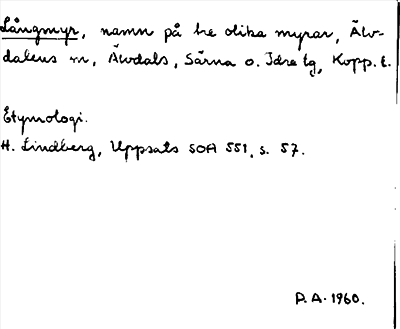 Långmyr, namn på tre olika myrar, Älv-
dalens m, Älvdals, Särna o. Idre tg, Kopp. l.
Etymologi.
H. Lindberg, Uppsats SOA 551, s. 57.
P.A. 1960.